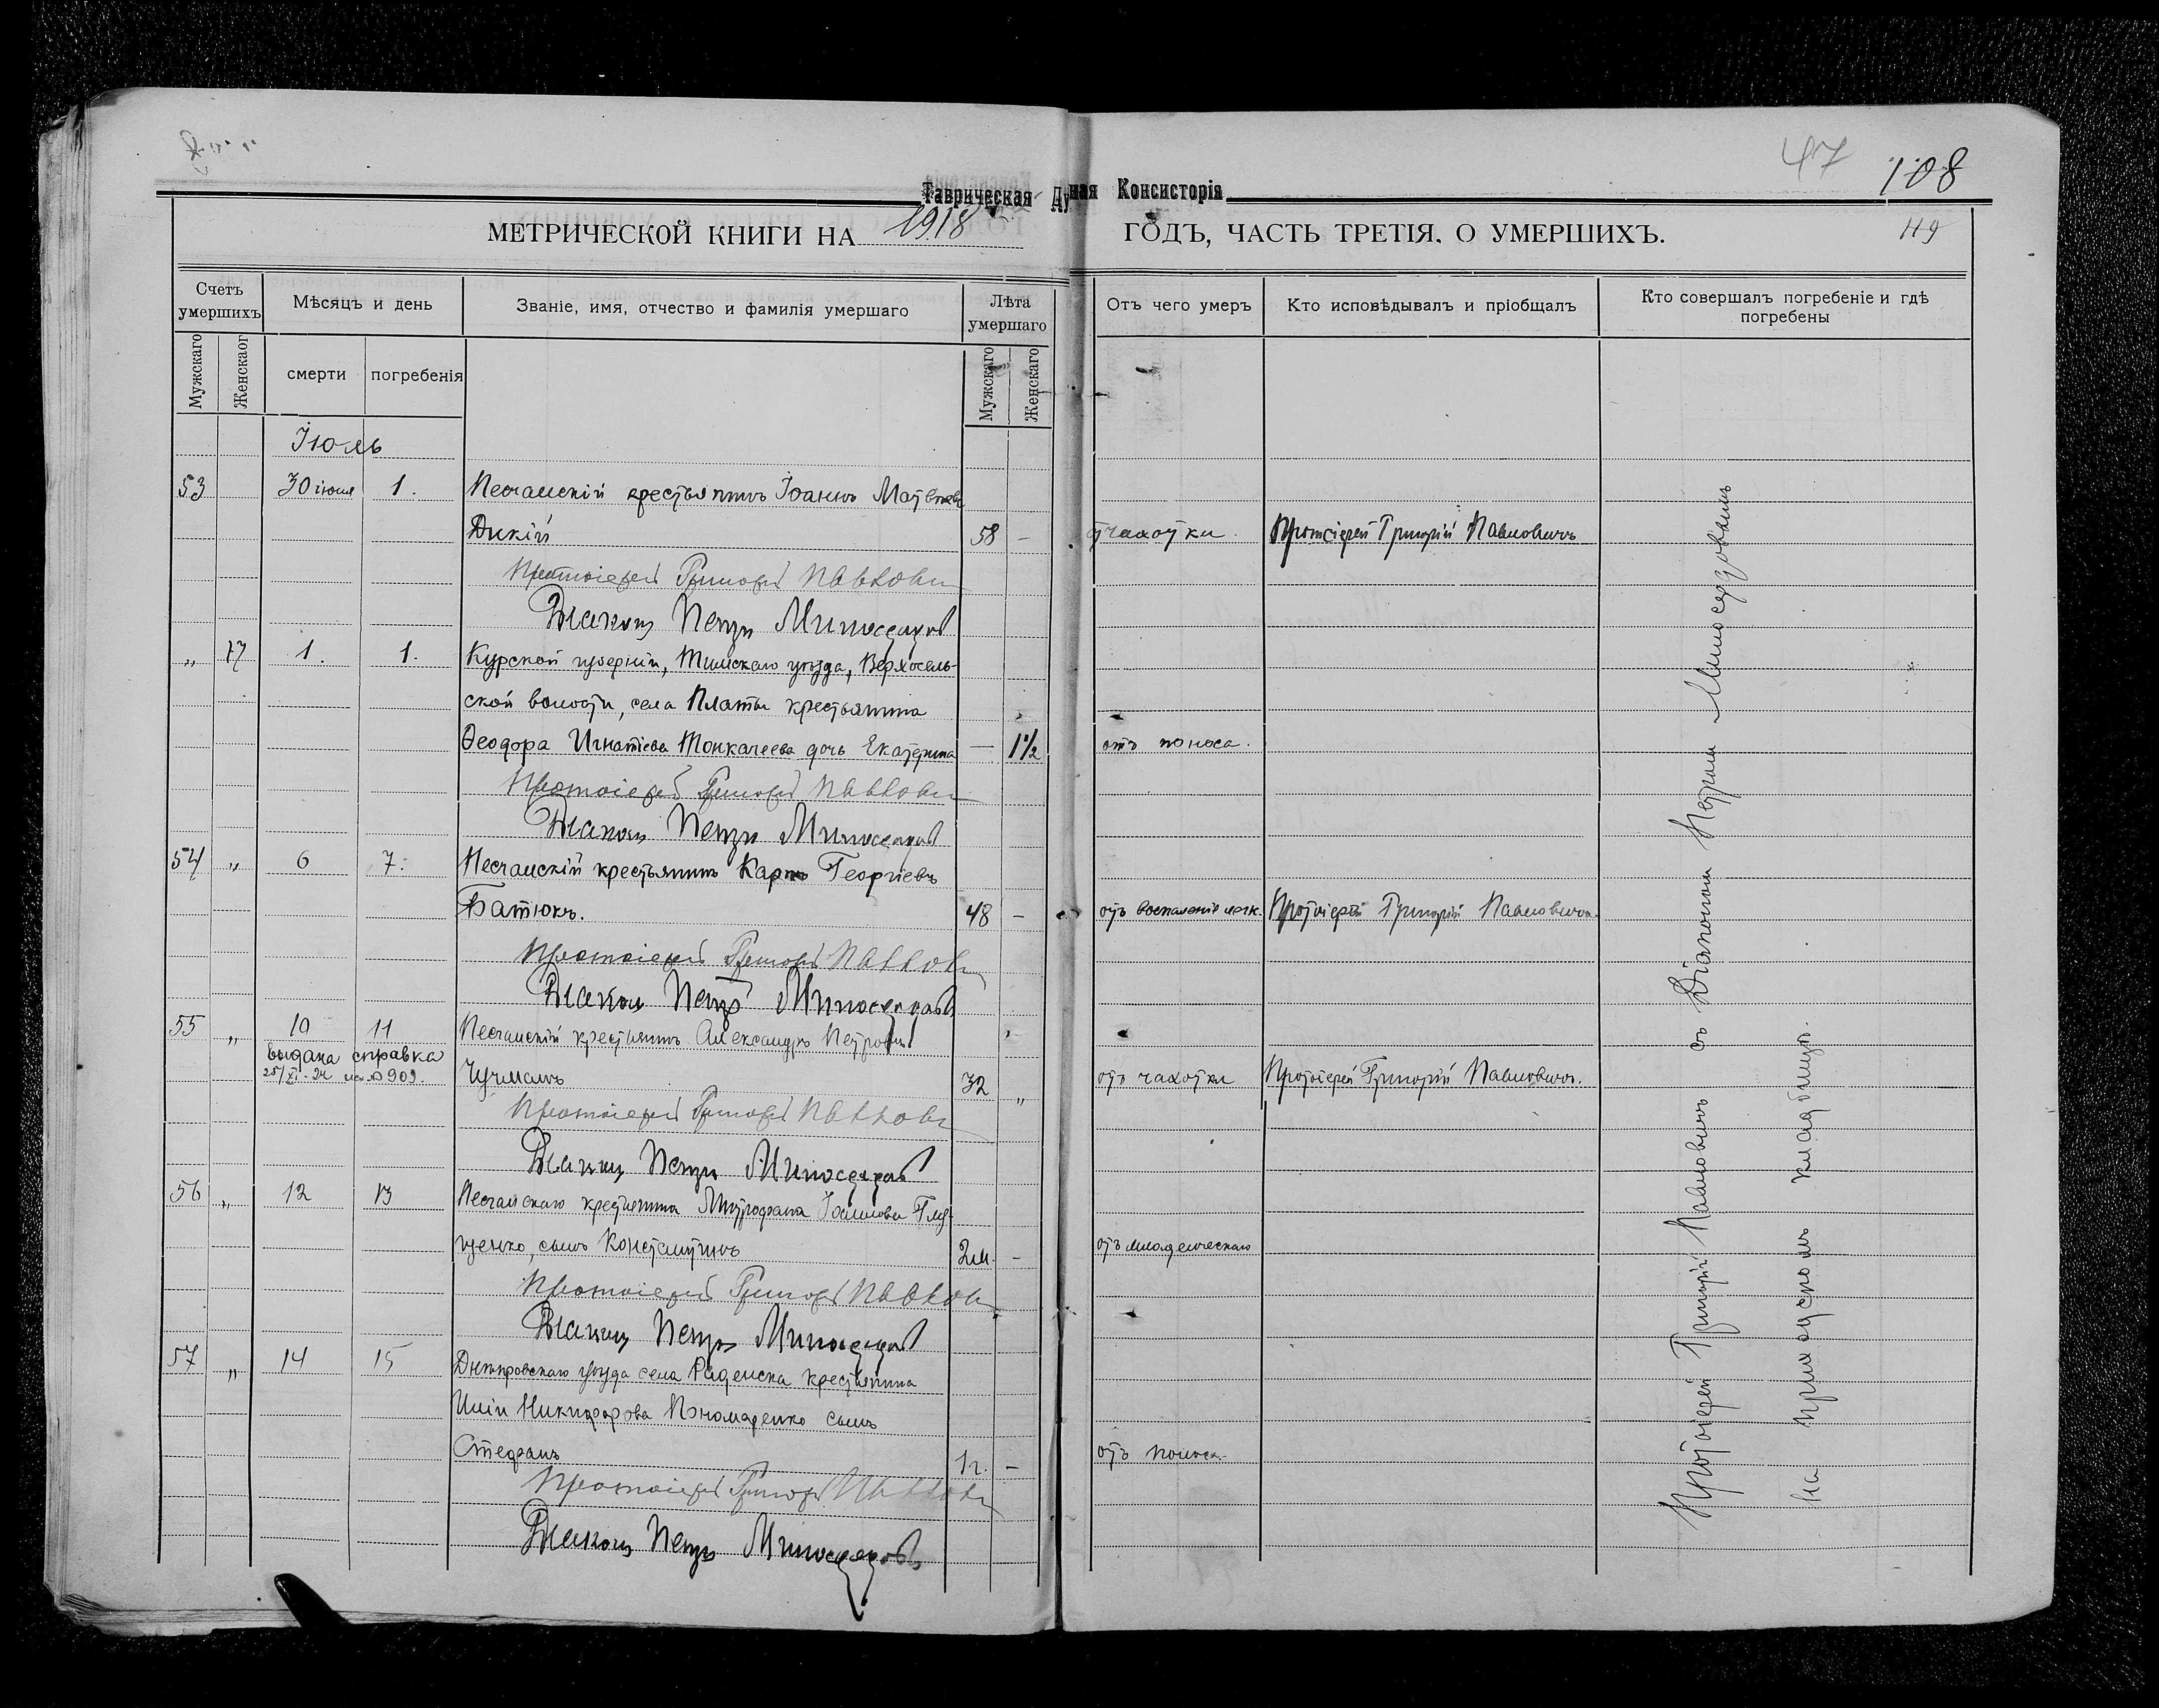 47
108
119
Таврическая Духовная Консисторія
МЕТРИЧЕСКОЙ КНИГИ НА 1918 ГОДЪ, ЧАСТЬ ТРЕТІЯ. О УМЕРШИХЪ.
Счетъ умершихъ
Мѣсяцъ и день
Званіе, имя, отчество и фамилія умершаго
Лѣта умершаго
Отъ чего умеръ
Кто исповѣдывалъ и пріобщалъ
Кто совершалъ погребеніе и гдѣ погребены
Мужскаго
Женскаог
смерти
погребенія
Мужскаго
Женскаго
Іюль
53 30 іюня 1. Песчанскій крестьянинъ Іоаннъ Матвѣевъ
Дикій 58 - отъ чахотки. Протоіерей Григорій Павловичъ
Протоіерей Григорій Павлович
Діаконъ Петръ Милосердов
„ 17 1. 1. Курской губерніи, Тимскаго уѣзда, Верхосель-
ской волости, села Платы крестьянина
Ѳеодора Игнатіева Тонкачеева дочь Екатерина — 1½ отъ поноса.
Протоіерей Григорій Павлович
Діаконъ Петръ Милосердов
54 „ 6 7. Песчанскій крестьянинъ Карпъ Георгіевъ
Батюкъ. 48 - отъ воспаленія легк. Протоіерей Григорій Павловичъ
Протоіерей Григорій Павлович
Діаконъ Петръ Милосердовъ
55 „ 10 11 Песчанскій крестьянинъ Александръ Петровъ
выдана справка
25/XI-24 за № 909. Чучманъ 32 „ отъ чахотки Протоіерей Григорій Павловичъ.
Протоіерей Григорій Павлович
Діаконъ Петръ Милосердов
56 „ 12 13 Песчанскаго крестьянина Митрофана Іоаннова Гла-
щенко, сынъ Константинъ 2 м. - отъ младенческаго
Протоіерей Григорій Павлович
Діаконъ Петръ Милосердов
57 „ 14 15 Днѣпровскаго уѣзда села Раденска крестьянина
Иліи Никифорова Пономаренко сынъ
Стефанъ 1 г. - отъ поноса.
Протоіерей Григорій Павлович
Діаконъ Петръ Милосердовъ
Протоіерей Григорій Павловичъ съ Діакономъ Петромъ Милосердовымъ
на приходскомъ кладбищѣ.